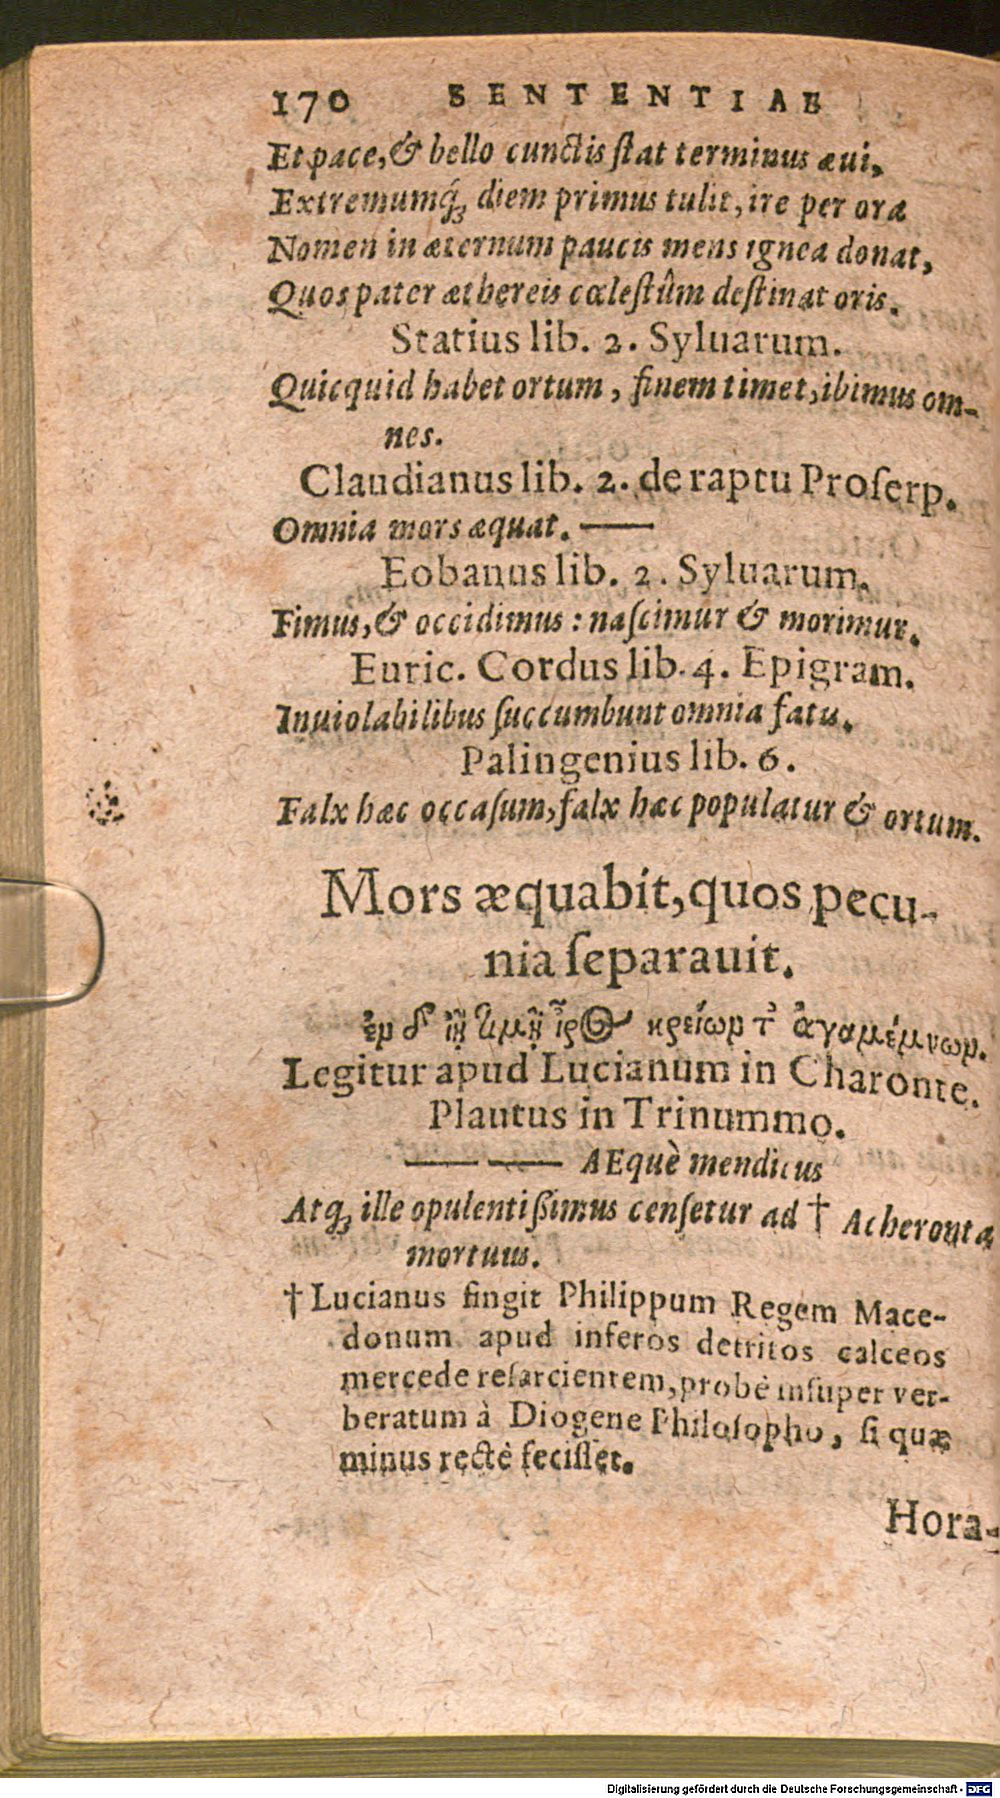 170 SENTENTIAE
Et pace, & bello cunctis ſtat terminus æui,
Extremumq́; diem primus tulit, ire per ora
Nomen in æternum paucis mens ignea donat,
Quos pater æthereis cœleſtûm deſtinat oris.
Statius lib. 2. Syluarum.
Quicquid habet ortum, finem timet, ibimus om-
nes.
Claudianus lib. 2. de raptu Proſerp.
Omnia mors æquat. ——
Eobanus lib. 2. Syluarum.
Fimus, & occidimus: naſcimur & morimur.
Euric. Cordus lib. 4. Epigram.
Inuiolabilibus ſuccumbunt omnia fatis.
Palingenius lib. 6.
Falx hæc occaſum, falx hæc populatur & ortum.
Mors æquabit, quos pecu-
nia ſeparauit.
ἐν δ' ἰῇ τιμῇ ἶρος κρείων τ' ἀγαμέμνων.
Legitur apud Lucianum in Charonte.
Plautus in Trinummo.
—— —— AEquè mendicus
Atq; ille opulentiſsimus cenſetur ad † Acheronta
mortuus.
† Lucianus fingit Philippum Regem Mace-
donum apud inferos detritos calceos
mercede reſarcientem, probè inſuper ver-
beratum à Diogene Philoſopho, ſi quæ
minus rectè feciſſet.
Hora-
Digitalisierung gefördert durch die Deutsche Forschungsgemeinschaft - DFG